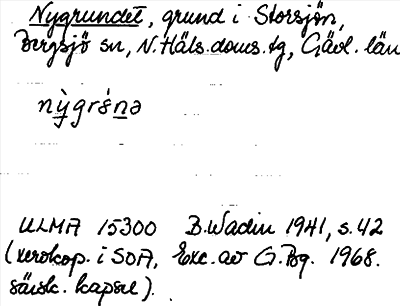 Nygrundet, grund i Storsjön,
Bergsjö sn, N.Häls.doms.tg, Gävl. län
nỳgrśnə
ULMA 15300 B.Wadin 1941, s.42
(xerokop. i SOA, Exc. av G.Bg. 1968.
särsk. kapsel).